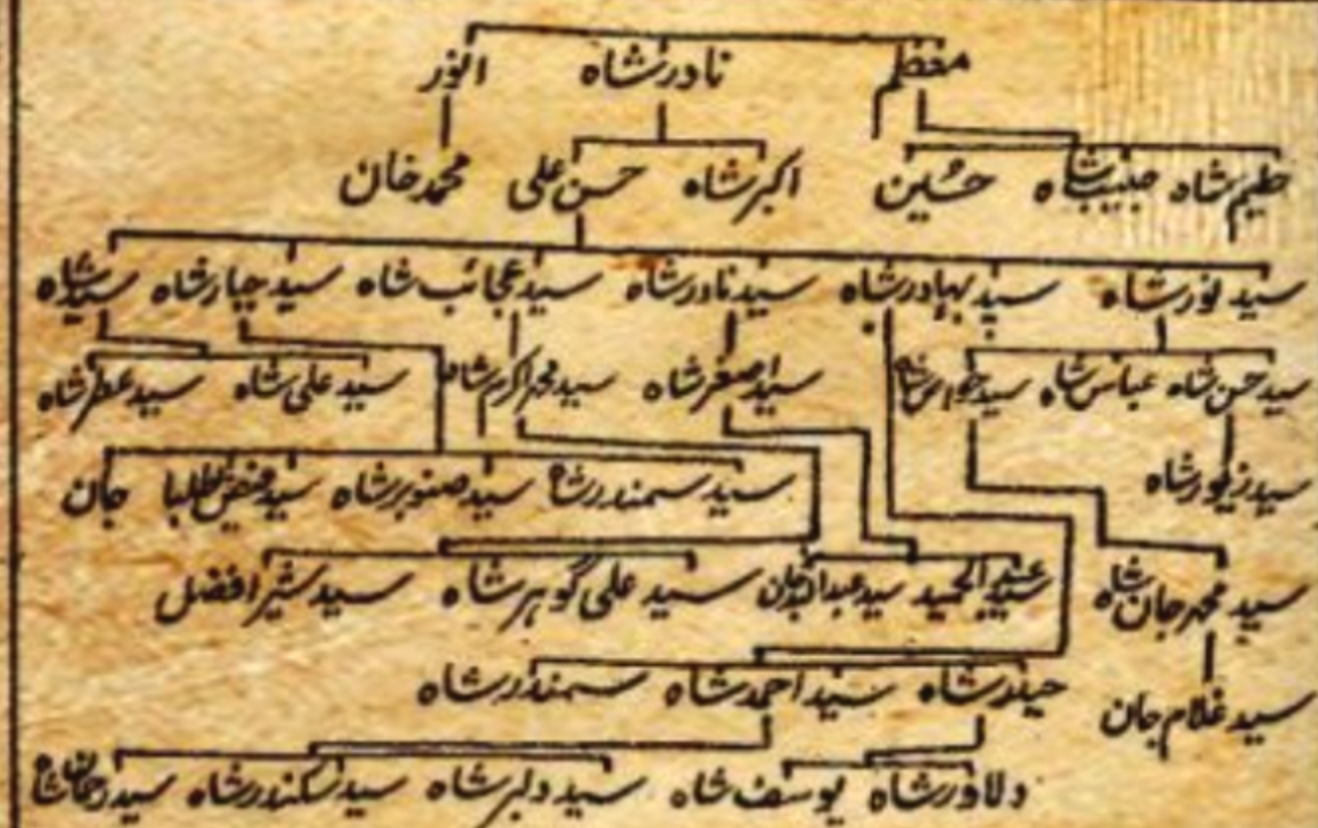 معظم نادر شاہ انور
حلیم شاہ حبیب شاہ حسین اکبر شاہ حسن علی محمد خان
سید نور شاہ سید بہادر شاہ سید نادر شاہ سید عجائب شاہ سید جبار شاہ سید شاہ
سید حسن شاہ عباس شاہ سید خواص شاہ سید اصغر شاہ سید محمد اکرم شاہ سید علی شاہ سید عطر شاہ
سید زیور شاہ سید سمندر شاہ سید صنوبر شاہ سید جان
سید محمد جان شاہ سید عبدالحمید سید علی گوہر شاہ سید شیر افضل
سید غلام جان حیدر شاہ سید احمد شاہ سمندر شاہ
دلاور شاہ یوسف شاہ سید دلبر شاہ سید سکندر شاہ سید